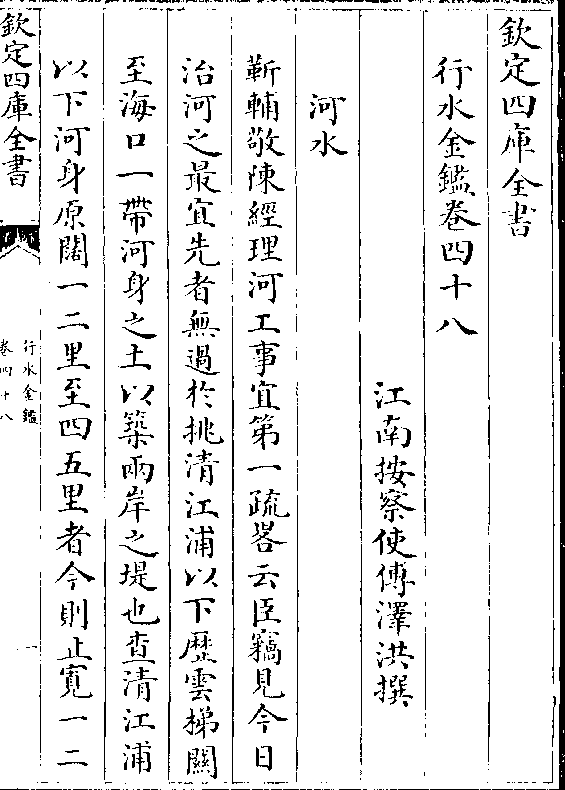 欽定四庫全書
行水金鑑卷四十八
江南按察使傅澤洪撰
河水
靳輔敬陳經理河工事宜第一疏畧云臣竊見今日
治河之最宜先者無過於挑清江浦以下歷雲梯關
至海口一帶河身之土以築兩岸之堤也查清江浦
以下河身原闊一二里至四五里者今則止寬一二
欽定四庫全書
行水金鑑
卷四十八
一